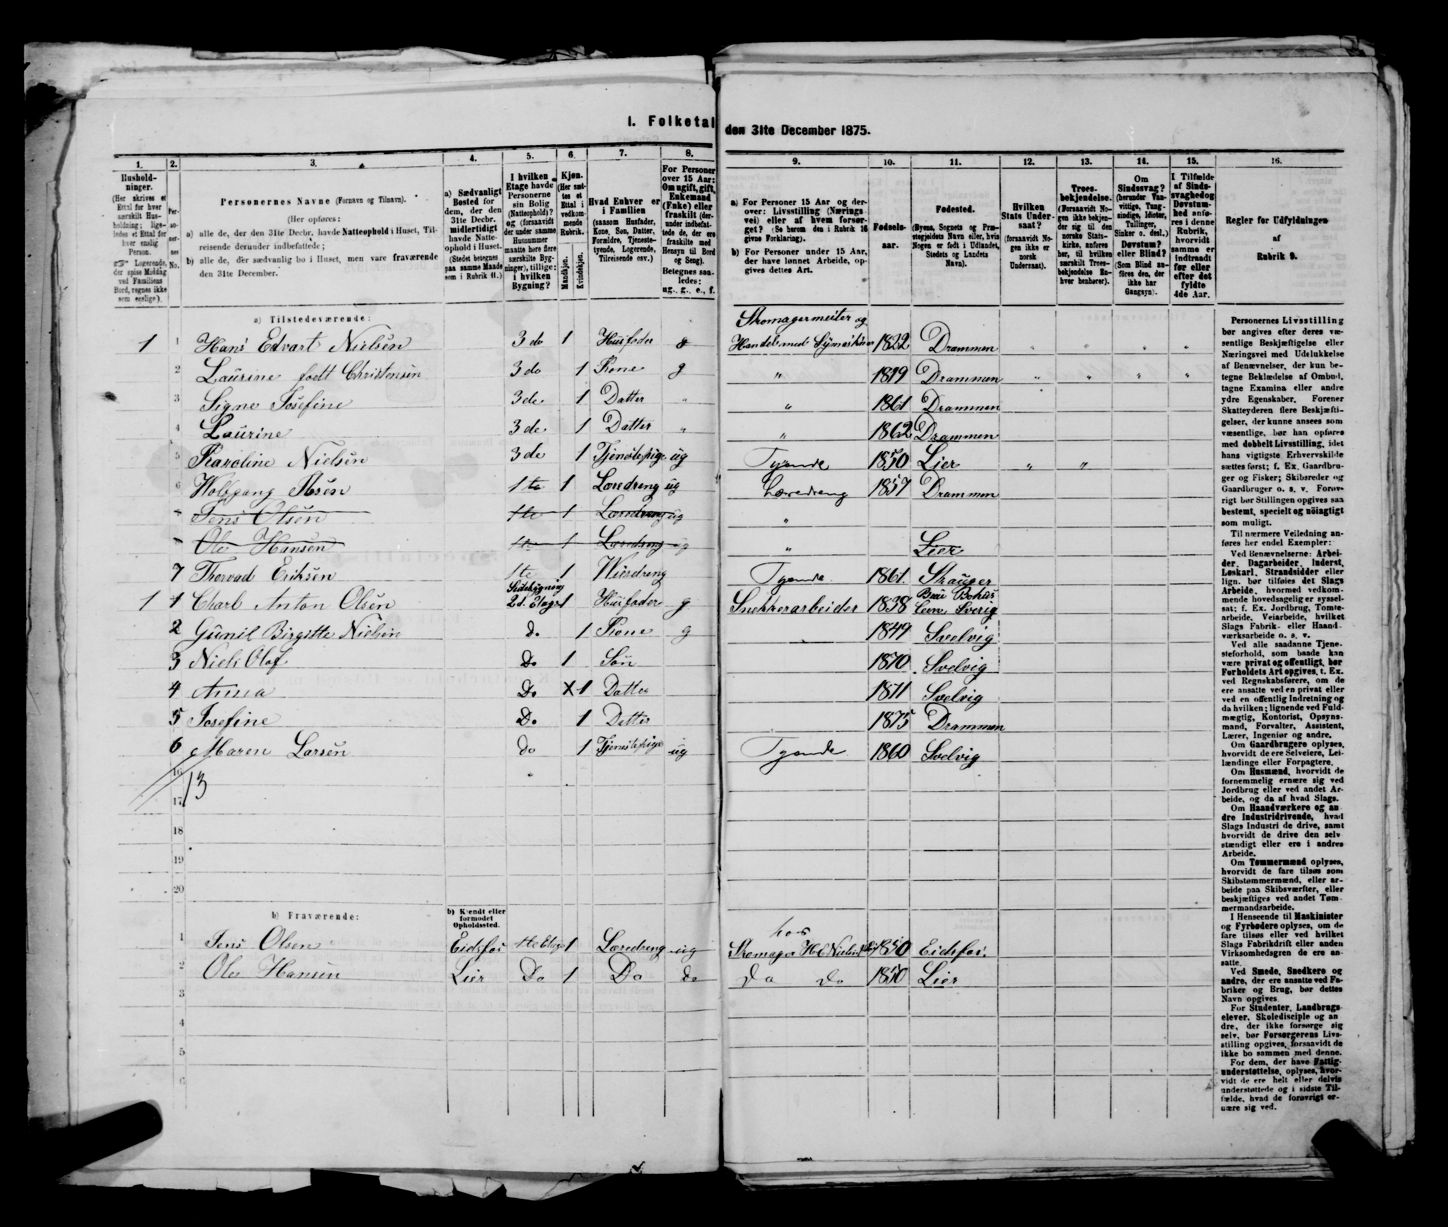 I. Folketal
den 31te December 1875.
1. 2. 3. 4. 5. 6. 7. 8. 9. 10. 11. 12. 13. 14. 15. 16.
Husholdninger.
(Her skrives et Ettal for hver særskilt Husholdning; ligeledes et Ettal for hver enslig Person.
Logerende, der spise Middag ved Familiens Bord, regnes ikke som enslige).
Personernes No.
Personernes Navne (Fornavn og Tilnavn).
(Her opføres:
a) alle de, der den 31te Decbr. havde Natteophold i Huset, Tilreisende derunder indbefattede;
b) alle de, der sædvanlig bo i Huset, men vare fraværende den 31te December.
a) Sædvanligt Bosted for dem, der den 31te Decbr. midlertidigt havde Natteophold i Huset.
(Stedet betegnes paa samme Maade som i Rubrik 11.)
I hvilken Etage havde Personerne sin Bolig (Natteophold)? og (forsaavidt der under samme Husnummer maatte høre flere særskilte Bygninger), tillige: i hvilken Bygning?
Kjøn.
(Her sættes et Ettal i vedkommende Rubrik.
Mandkjøn.
Kvindekjøn.
Hvad Enhver er i Familien
(saasom Husfader, Kone, Søn, Datter, Forældre, Tjenestetyende, Logerende, Tilreisende osv.)
For Personer over 15 Aar: Om ugift, gift, Enkemand (Enke) eller fraskilt (derunder indbefattede de, der ere fraskilte med Hensyn til Bord og Seng).
Betegnes saaledes: ug., g., e., f.
a) For Personer 15 Aar og derover: Livsstilling (Næringsvei) eller af hvem forsørget? (Se herom den i Rubrik 16 givne Forklaring).
b) For Personer under 15 Aar, der have lønnet Arbeide, opgives dettes Art.
Fødselsaar.
Fødested.
(Byens, Sognets og Præstegjeldets Navn eller, hvis Nogen er født i Udlandet, Stedets og Landets Navn).
Hvilken Stats Undersaat?
(forsaavidt Nogen ikke er norsk Undersaat).
Troesbekjendelse.
(Forsaavidt Nogen ikke bekjender sig til den norske Statskirke, anføres her, til hvilken særskilt Troesbekjendelse Enhver henhører).
Om Sindssvag?
(herunder Vanvittige, Tungsindige, Idioter, Tullinger, Sinker o. desl.)
Døvstum? eller Blind?
(Som Blind anføres den, der ikke har Gangsyn).
I Tilfælde af Sindssvaghed og Døvstumhed anføres i denne Rubrik, hvorvidt samme er indtraadt før eller efter det fyldte 4de Aar.
Regler for Udfyldningen af Rubrik 9.
a) Tilstedeværende:
Skomagermeister og
1 1 Hans Edvart Nielsen 3 do 1 Husfader g Handels med Symaskiner 1822 Drammen
2 Laurine født Christensen 3 do 1 Kone g " 1819 Drammen
3 Signe Josefine 3 de 1 Datter " " 1861 Drammen
4 Laurine 3 de 1 Datter " " 1862 Drammen
5 Karoline Nielsen 3 de 1 Tjenstepige ug Tyende 1850 Lier
6 Wolfgang Olsen 1 te 1 Læredreng ug Læredreng 1857 Drammen
Jens Olsen 1 te 1 Læredreng ug "
Ole Hansen 1 te 1 Læredreng ug " Lier
7 Thorvad Eriksen 1 te 1 Viisdreng Tyende 1861
Sidebygning
1 1 Charl Anton Olsen 2d. Etage 1 Husfader g Snekkerarbeider 1838 Bohus Len Sverig
2 Gunil Birgitte Nielsen do 1 Kone g 1849 Svelvig
3 Niels Olof Do 1 Søn 1870 Svelvig
4 Anna Do X 1 Datter 1871 Svelvig
5 Josefine Do 1 Datter 1875 Drammen
6 Maren Larsen do 1 Tjenstepige ug Tyende 1860 Svelvig
16
17 13
18
19
20
b) Fraværende:
b) Kjendt eller formodet Opholdssted.
hos
1 Jens Olsen Eidsfos 1te Etage 1 Læredreng ug Skomager H E Nielsen 1850 Eidsfos.
2 Ole Hansen Lier Do 1 Do do Do do 1850 Lier
3
4
5
6
Personernes Livsstilling
bør angives efter deres væ-
sentlige Beskjæftigelse eller
Næringsvei med Udelukkelse
af Benævnelser, der kun be-
tegne Beklædelse af Ombud,
tagne Examina eller andre
ydre Egenskaber. Forener
Skatteyderen flere Beskjæfti-
gelser, der kunne ansees som
væsentlige, bør han opføres
med dobbelt Livsstilling, idet
hans vigtigste Erhvervskilde
sættes først; f. Ex. Gaardbru-
ger og Fisker; Skibsreder og
Gaardbruger o. s. v. Forøv-
rigt bør Stillingen opgives saa
bestemt, specielt og nøiagtigt
som muligt.
Til nærmere Veiledning an-
føres her endel Exempler:
Ved Benævnelserne: Arbei-
der, Dagarbeider, Inderst,
Løskarl, Strandsidder eller
lign. bør tilføies det Slags
Arbeide, hvormed vedkom-
mende hovedsagelig er syssel-
sat; f. Ex. Jordbrug, Tomte-
arbeide, Veiarbeide, hvilket
Slags Fabrik- eller Haand-
værksarbeide o. s. v.
Ved alle saadanne Tjene-
steforhold, som baade kan
være privat og offentligt, bør
Forholdets Art opgives, t. Ex.
ved Regnskabsførere, om de
ere ansatte ved en privat eller
ved en offentlig Indretning og
da hvilken; lignende ved Fuld-
mægtig, Kontorist, Opsyns-
mand, Forvalter, Assistent,
Lærer, Ingeniør og andre.
Om Gaardbrugere oplyses,
hvorvidt de ere Selveiere, Lei-
lændinge eller Forpagtere.
Om Husmænd, hvorvidt de
fornemmelig ernære sig ved
Jordbrug eller ved andet Ar-
beide, og da af hvad Slags.
Om Haandværkere og an-
dre Industridrivende, hvad
Slags Industri de drive, samt
hvorvidt de drive den selv
stændigt eller ere i andres
Arbeide.
Om Tømmermænd oplyses,
hvorvidt de fare tilsøs som
Skibstømmermænd, eller ar-
beide paa Skibsværfter, eller
beskjæftiges ved andet Tøm-
mermandsarbeide.
I Henseende til Maskinister
og Fyrbødere oplyses, om de
fare tilsøs eller ved hvilket
Slags Fabrikdrift eller anden
Virksomhedsgren de ere an-
satte.
Ved Smede, Snedkere og
andre, der ere ansatte ved Fa-
briker og Brug, bør dettes
Navn opgives.
For Studenter, Landbrugs-
elever, Skoledisciple og an
dre, der ikke forsørge sig
selv, bør Forsørgerens Livs-
stilling opgives, forsaavidt de
ikke bo sammen med denne.
For dem, der have Fattig-
understøttelse, oplyses, hvor-
vidt de ere helt eller delvis
understøttede og i sidste Til-
fælde, hvad de forøvrigt er-
nære sig ved.